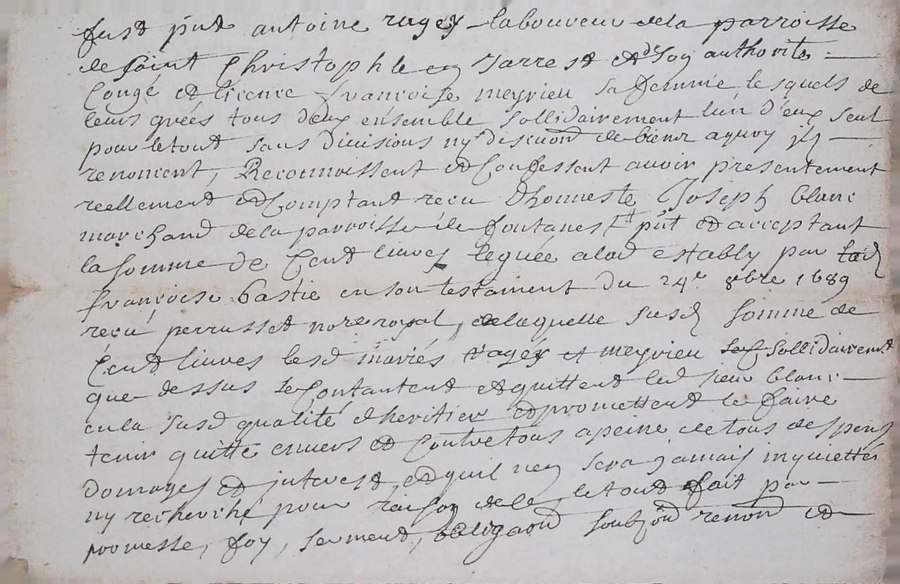 fust pnt antoine ragey laboureur de la parroisse
de saint Christophle en Jarrest et de soy authorite
Congé et licence françoise meyrieu sa femme lesquels de
leurs gréés tous deux ensemble sollidairement lun d'eux seul
pour le tout sans divisions ny discuon de biens a quoy ilz
renoncent, Reconnoissent et Confessent avoir presentement
reellement et Comptant receu d'honneste Joseph blanc
marchand de la parroisse de fontanest pnt et acceptant
la somme de Cent livres leguée a lad estably par lad
françoise bastie en son testament du 24e 8bre 1689
receu perrusset nore royal, de laquelle susd somme de
Cent livres lesd mariés ragey et meyrieu sollidairement
que dessus se Contantent et quittent led sieur blanc
en la susd qualité d'heritier et promettent le faire
tenir quitte envers et Contre tous a peine de tous despens
domages et interest, et quil nen sera jamais inquietter
ny recherché pour raison de ce le tout fait par
promesse, foy, serment, obligaon soubzon renond et